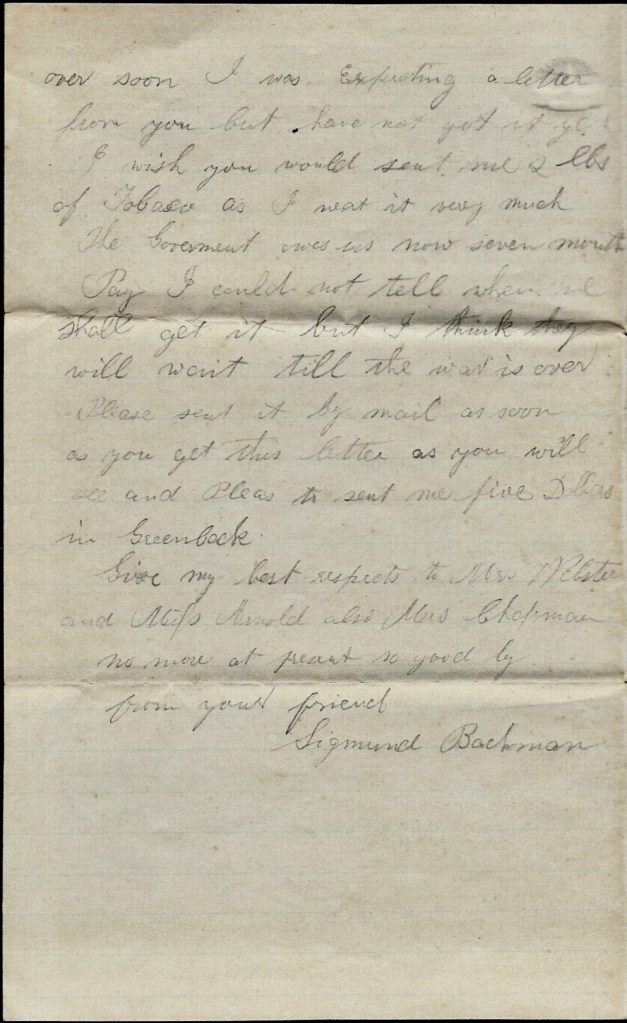 over soon I was Expecting a letter
from you but have not got it yet
I wish you would sent me 2 lbs
of Tobaco as I neat it very much
The Goverment owes us now seven month
Pay I could not tell when we
shall get it but I think they
will wait till the war is over
Please sent it by mail as soon
as you get this letter as you will
see and Pleas to sent me five Dollars
in Greenback
Give my best respects to Mrs Webster
and Miss Arnold also Mrs Chapman
no more at preant so good by
from your friend
Sigmund Bachman